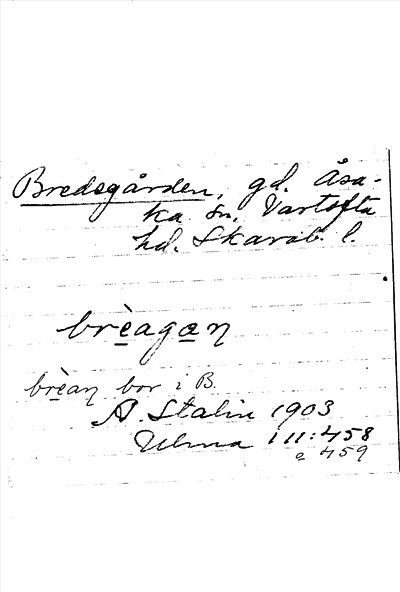 Bredsgården, gd. Åsa-
ka sn, Vartofta
hd. Skarab. l.
brèagaŋ
brèaŋ bor i B.
A. Stalin 1903
Ulma 111:458
o 459